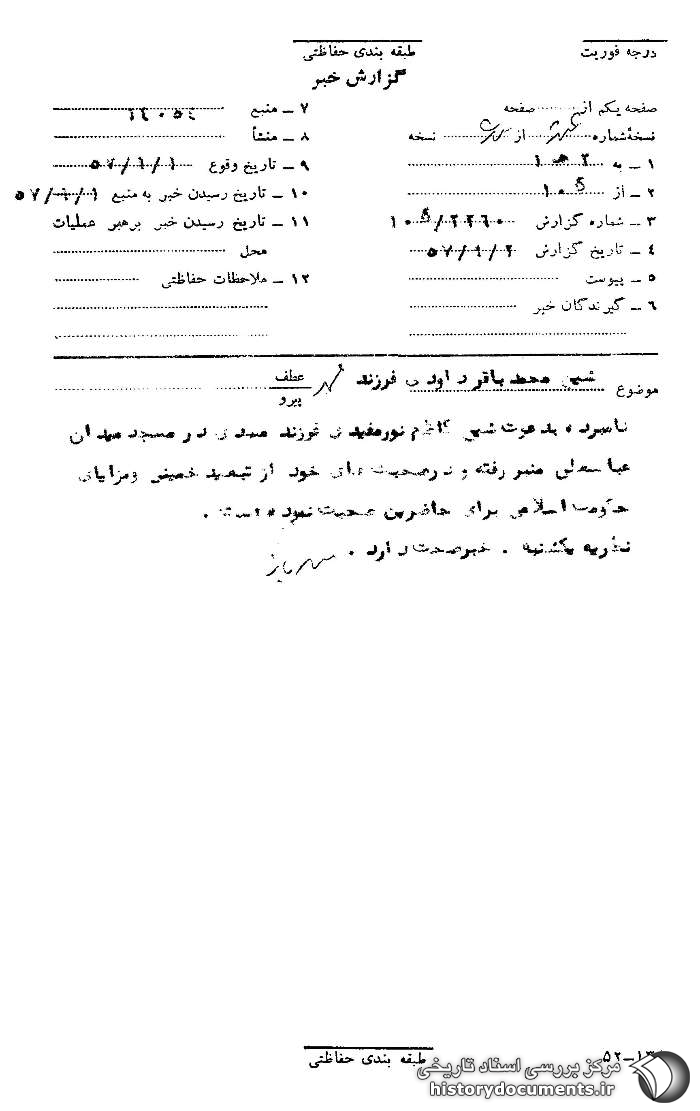 درجه فوریت
طبقه بندی حفاظتی
گزارش خبر
صفحه یکم از ........ صفحه
نسخهٔ شماره ........ از ........ نسخه
۱ ـ به ۳ ه ۱
۲ ـ از ۱۰ ه
۳ ـ شماره گزارش ۱۰ ه/۲۲۶۰
۴ ـ تاریخ گزارش ۵۷/۹/۲
۵ ـ پیوست
۶ ـ گیرندگان خبر
۷ ـ منبع
۸ ـ منشأ
۹ ـ تاریخ وقوع ۵۷/۹/۱
۱۰ ـ تاریخ رسیدن خبر به منبع ۵۷/۹/۱
۱۱ ـ تاریخ رسیدن خبر برهبر عملیات
محل
۱۲ ـ ملاحظات حفاظتی
موضوع شیخ محمد باقر داودی فرزند
عطف
پیرو
نامبرده بدعوت شیخ کاظم نورمفیدی فرزند مهدی در مسجد میدان
عباسعلی منبر رفته و در صحبت های خود از تبعید خمینی و مزایای
حکومت اسلامی برای حاضرین صحبت نموده است .
نظریه یکشنبه . خبر صحت دارد .
طبقه بندی حفاظتی
مرکز بررسی اسناد تاریخی
historydocuments.ir